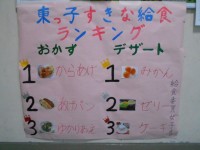 東っ子すきな給食
ランキング
おかず デザート
1 からあげ 1 みかん
2 2 ゼリー
3 3 ケーキ